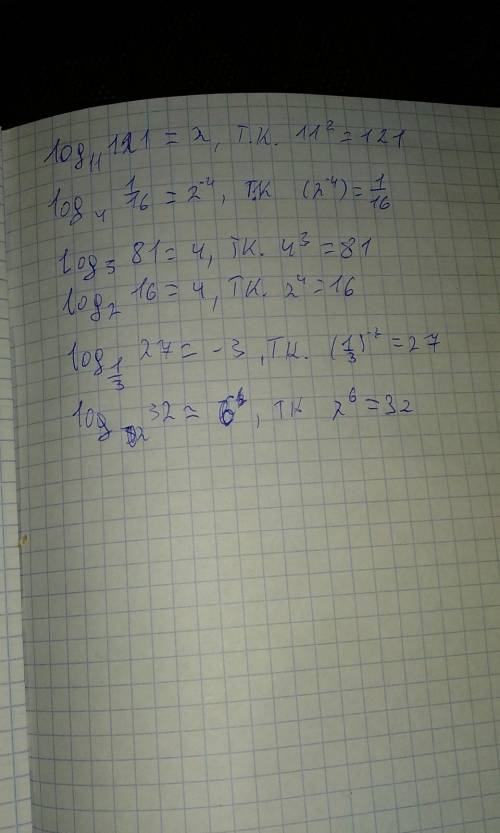 log₁₁ 121 = 2, т.к. 11² = 121
log₄ 1/16 = 2⁻⁴, т.к (2⁻⁴) = 1/16
log₃ 81 = 4, т.к. 4³ = 81
log₂ 16 = 4, т.к. 2⁴ = 16
log_1/3 27 = -3, т.к. (1/3)⁻² = 27
log₂ 32 = 6, тк 2⁶ = 32